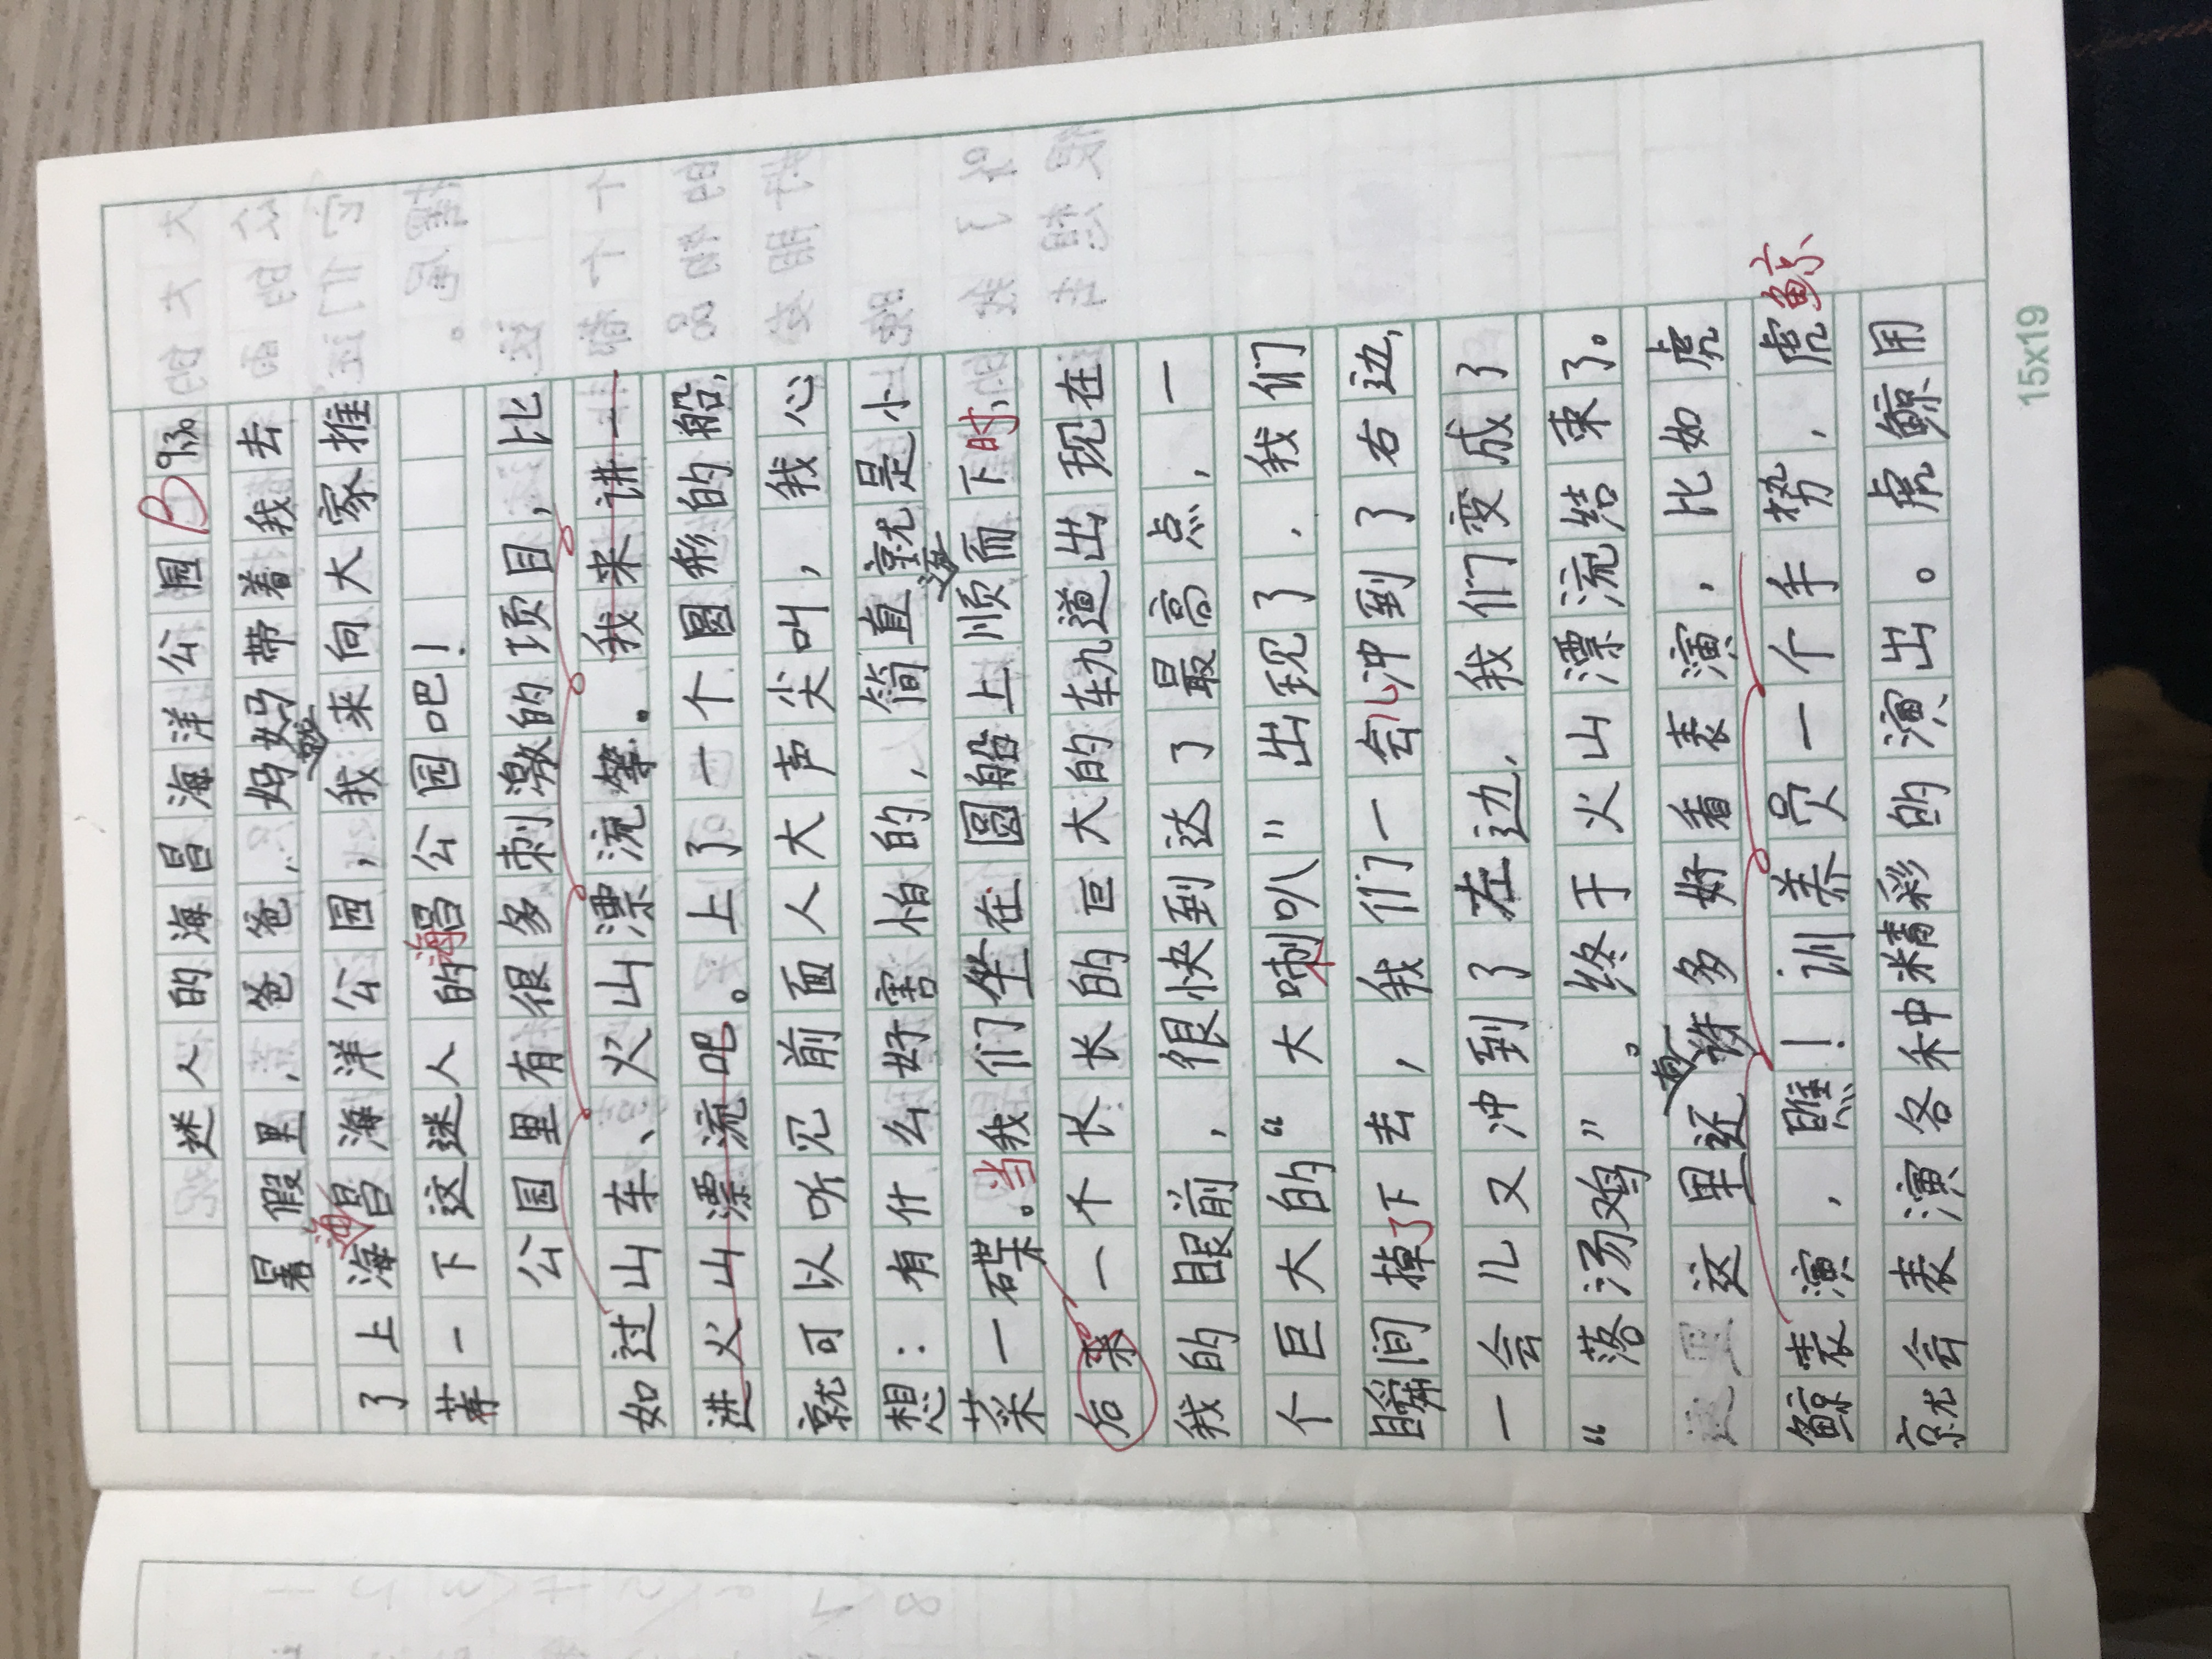 迷人的海昌海洋公园 B 9.30
暑假里，爸爸、妈妈带着我去
海
就
了上海昌海洋公园，我来向大家推
荐一下这迷人的海昌公园吧！
公园里有很多刺激的项目，比
如过山车、火山漂流等。我来讲一
进火山漂流吧。上了一个圆形的船，
就可以听见前面人大声尖叫，我心
想：有什么好害怕的，简直就是小
流
菜一碟。当我们坐在圆船上顺而下时，
后来一个长长的巨大的轨道出现在
我的眼前，很快到达了最高点，一
个巨大的“大喇叭”出现了，我们
瞬间掉了下去，我们一会儿冲到了右边，
一会儿又冲到了左边，我们变成了
“落汤鸡”。终于火山漂流结束了。
有
这里这里还许多好看表演，比如虎
鲸表演，瞧！训养员一个手势，虎鲸
就会表演各种精彩的演出。虎鲸用
15x19